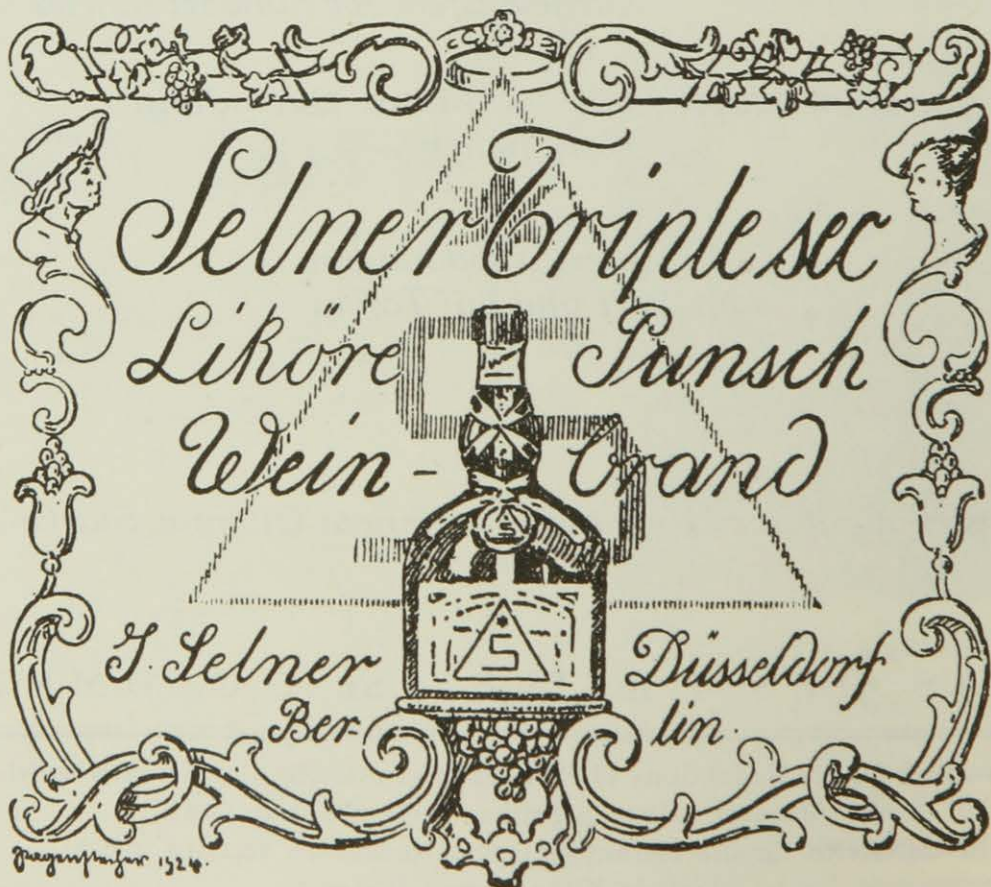 Selner Triple sec
Liköre Punsch
Wein-brand
J. Selner Düsseldorf
Ber-lin.
S
Pagenstecher 1924.